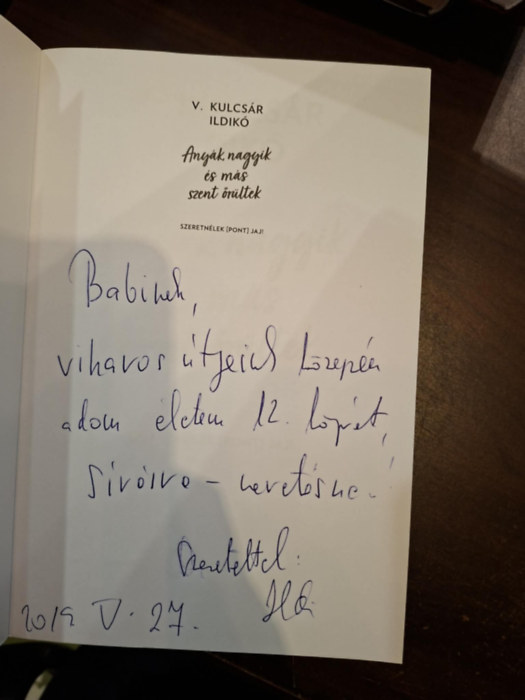 V. KULCSÁR
ILDIKÓ
Anyák, nagyik
és más
szent őrültek
SZERETNÉLEK (PONT) JAJ!
Babinak,
viharos útjaid közepén
adom életem 12. könyvét,
sírásra – nevetésre!
Szeretettel:
Ildi
2019 V. 27.